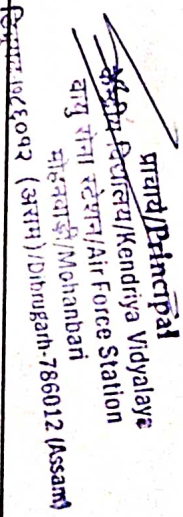 प्राचार्य/Principal
केन्द्रीय विद्यालय/Kendriya Vidyalaya
वायु सेना स्टेशन/Air Force Station
मोहनबाड़ी/Mohanbari
डिब्रूगढ़-७८६०१२ (असम)/Dibrugarh-786012 (Assam)